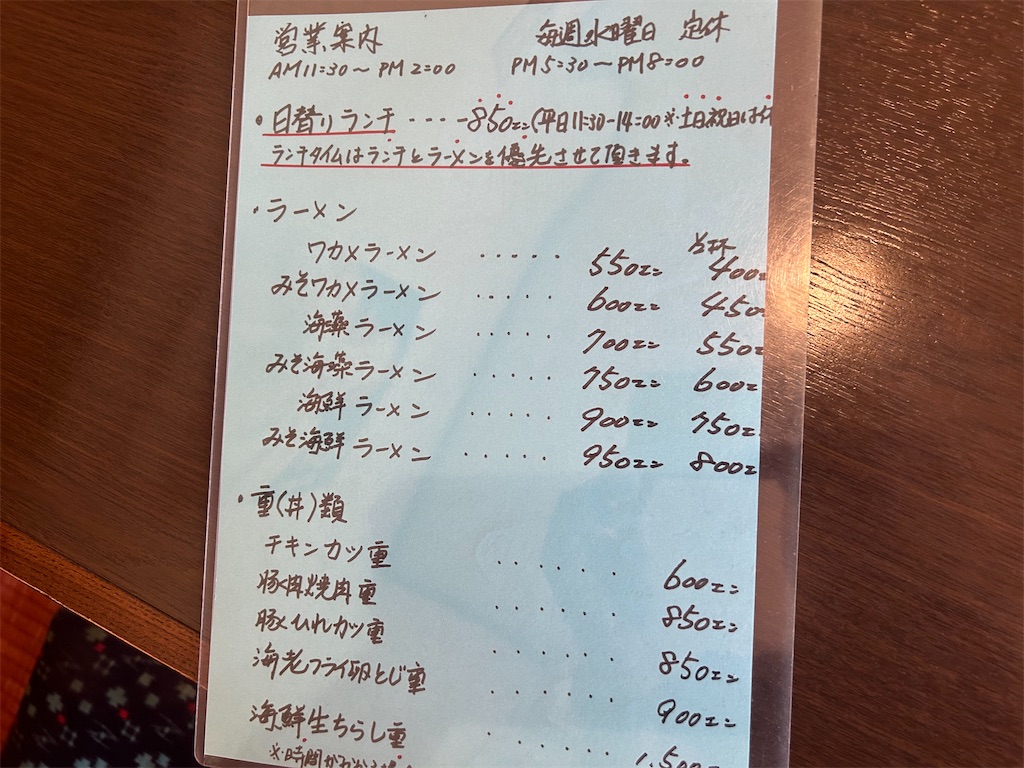 営業案内 毎週水曜日 定休
AM11:30〜PM2:00 PM5:30〜PM8:00
・日替りランチ ････850エン(平日11:30-14:00※土日祝日は
ランチタイムはランチとラーメンを優先させて頂きます。
・ラーメン
半杯
ワカメラーメン ····· 550エン 400エ
みそワカメラーメン ····· 600エン 450
海藻ラーメン ····· 700エン 550エ
みそ海藻ラーメン ····· 750エン 600エ
海鮮ラーメン ····· 900エン 750エ
みそ海鮮ラーメン ····· 950エン 800エ
・重(丼)類
チキンカツ重 ······ 600エン
豚肉焼肉重 ······ 850エン
豚ひれカツ重 ······ 850エン
海老フライ卵とじ重 ······ 900エン
海鮮生ちらし重 ······ 1,500エン
※時間が